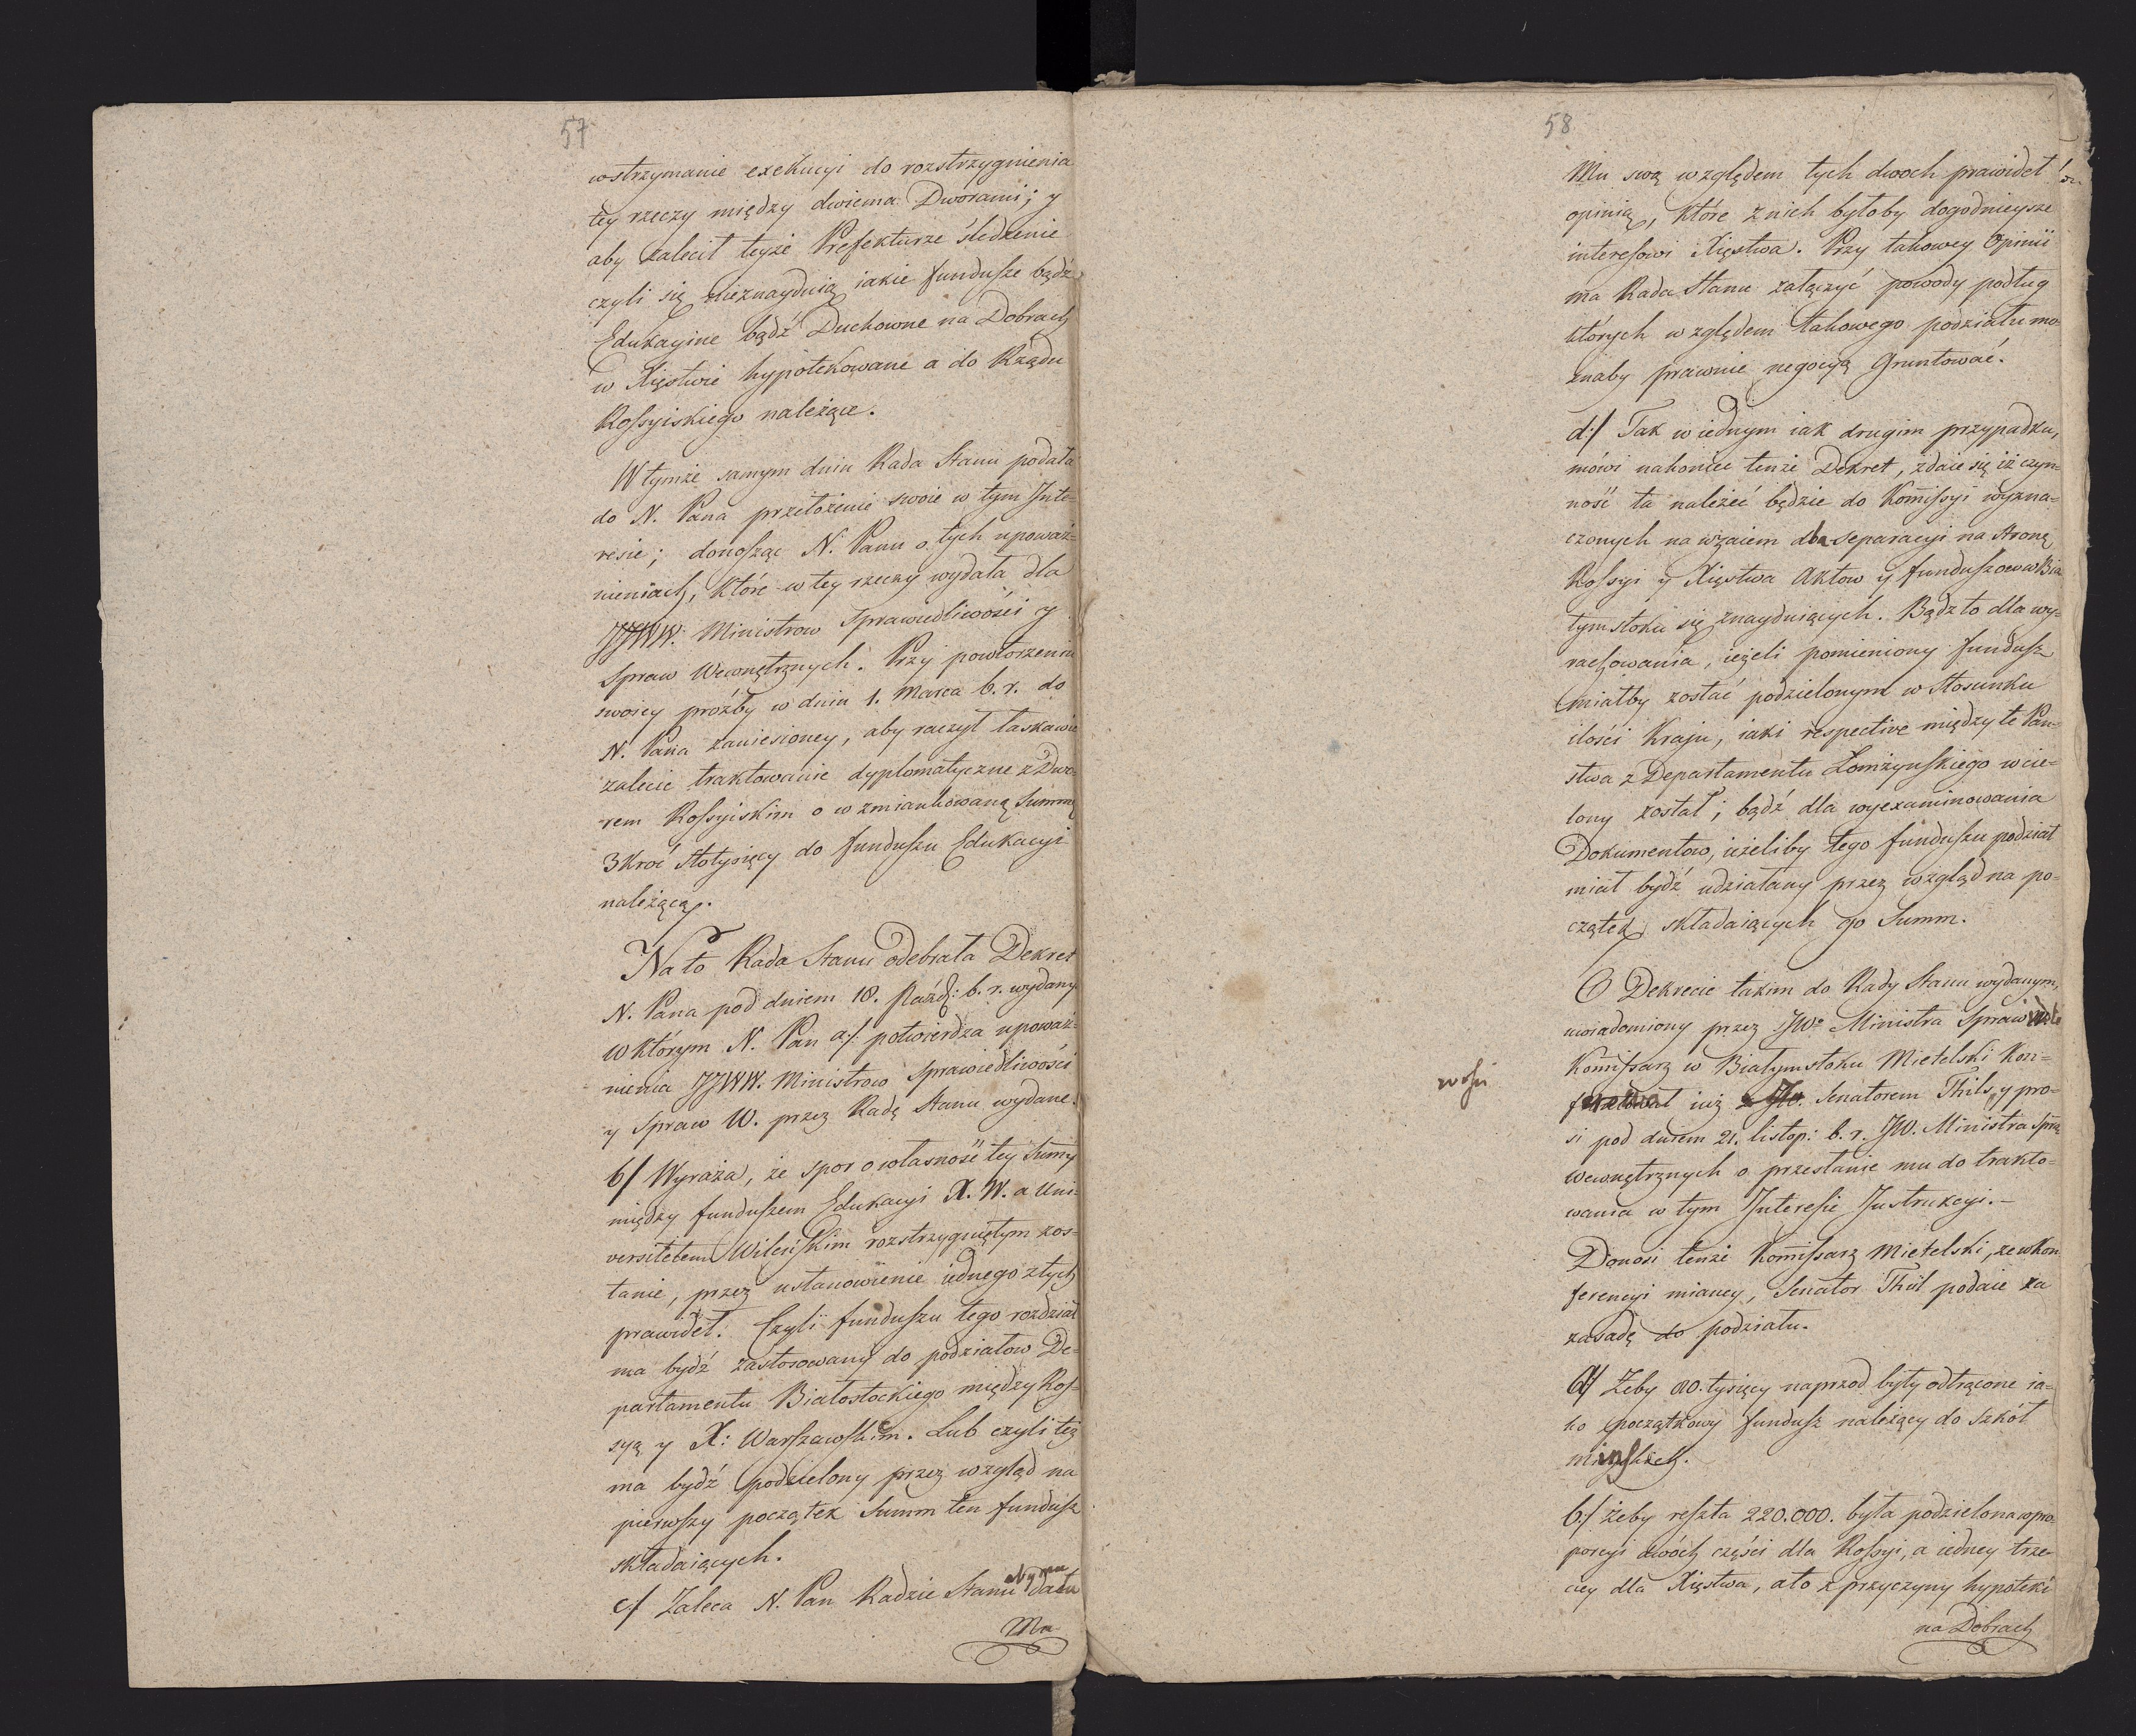 57
wstrzymanie exekucyi do rozstrzygnienia
tey rzeczy między dwiema Dworami; y
aby zalecił teyże Prefekturze śledzenie
czyli się nieznayduią iakie fundusze bądź
Edukacyine bądź Duchowne na Dobrach
w Xięstwie hypotekowane a do Rządu
Rossyiskiego należące.
W tymże samym dniu Rada Stanu podała
do N. Pana przełożenie swoie w tym Inte-
resie; donosząc N. Panu o tych upoważ-
nieniach, które w tey rzeczy wydała dla
JJWW. Ministrow Sprawiedliwości y
Spraw Wewnętrznych. Przy powtorzeniu
swoiey proźby w dniu 1. Marca b. r. do
N. Pana zaniesioney, aby raczył łaskawie
zalecić traktowanie dyplomatyczne z Dwo-
rem Rossyiskim o wzmiankowaną Summę
3kroć Stotysięcy do funduszu Edukacyi
należącą.
Na to Rada Stanu odebrała Dekret
N. Pana pod dniem 18. Paźdz: b. r. wydany
w którym N. Pan a/. potwierdza upoważ-
nienia JJWW. Ministrow Sprawiedliwości
y Spraw W. przez Radę Stanu wydane.
b/ Wyraża, że spor o własność tey Summy
między funduszem Edukacyi X. W. a Uni-
versitetem Wileńskim rozstrzygniętym zos-
tanie, przez ustanowienie iednego z tych
prawideł. Czyli funduszu tego rozdział
ma bydź zastosowany do podziałow De-
partamentu Białostockiego między Ros-
syą y X: Warszawskiem. Lub czyli też
ma bydź podzielony przez wzgląd na
pierwszy początek Summ ten fundusz
składaiących.
c/ Zaleca N. Pan Radzie Stanu aby mu dała
Mu
58
Mu swą względem tych dwoch prawideł
opinią, które z nich byłoby dogodnieysze
interesowi Xięstwa. Przy takowey Opinii
ma Rada Stanu załączyć powody podług
których względem takowego podziału mo-
żnaby prawnie negocyą gruntować.
d:/ Tak w iednym iak drugim przypadku,
mówi nakoniec tenże Dekret, zdaie się iż czyn-
ność ta należeć będzie do Komissyi wyzna-
czonych nawzaiem dla separacyi na Stronę
Rossyi y Xięstwa Aktow y funduszow w Bia
łymstoku się znayduiących. Bądz to dla wy-
rachowania, ieżeli pomieniony fundusz
miałby zostać podzielonym w Stosunku
ilości Kraju, iaki respective między te Pań-
stwa z Departamentu Łomżyńskiego wcie-
lony został; bądź dla wyexaminowania
Dokumentow, ieżeliby tego funduszu podział
miał bydź udziałany przez wzgląd na po-
czątek składaiących go Summ.
O Dekrecie takim do Rady Stanu wydanym,
uwiadomiony przez JWo Ministra Sprawiedl.
Komissarz w Białymstoku Mietelski Kon-
ferował iuż z JW. Senatorem Thils, y pro-
si pod dniem 21. listop: b. r. JW. Ministra Spra
Wewnętrznych o przesłanie mu do trakto-
wania w tym Interesie Instrukcyi.—
Donosi tenże Komissarz Mietelski, ze w Kon
ferencyi mianey, Senator Thil podaie za
zasadę do podziału.
a/ Żeby 80. tysięcy naprzod były odtrącone ia-
ko początkowy fundusz należący do Szkół
mińskich.
b:/ żeby reszta 220.000. była podzielona w pro-
porcyi dwóch części dla Rossyi, a iedney trze-
ciey dla Xięstwa, a to z przyczyny hypoteki
na Dobrach